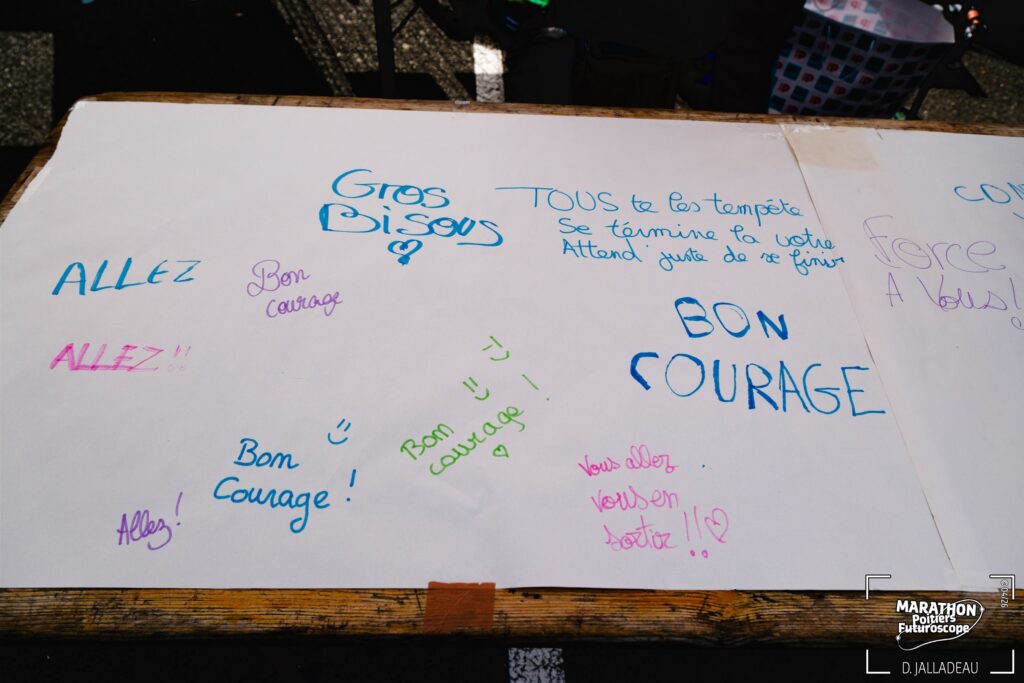 Gros
Bisous
TOUS te les tempéte
Se términe la votre
Attend juste de se finir
ALLEZ
Bon
courage
ALLEZ!!
BON
COURAGE
Force
A Vous!!
Bon
courage !
Bon
Courage !
Allez!
Vous allez
vous en
sortir !!
MARATHON
Poitiers
Futuroscope
D. JALLADEAU
©04/26